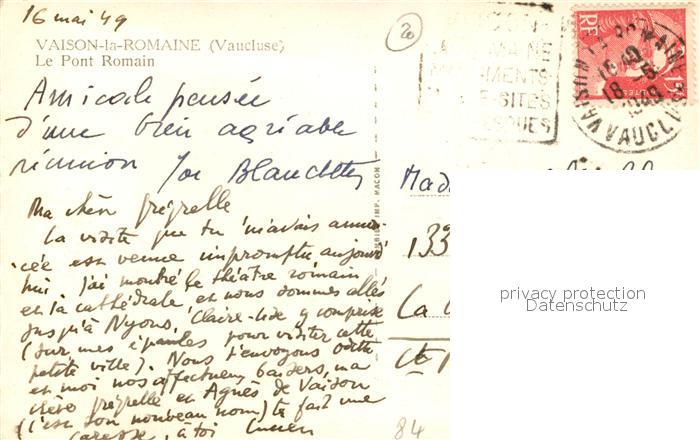 16 mai 49
VAISON-la-ROMAINE (Vaucluse)
Le Pont Romain
Amicale pensée
d'une bien agréable
réunion
Ma chère
La visite que tu m'avais annon-
cée est venue impromptu aujourd'
hui. J'ai montré le théâtre romain
et la cathédrale, et nous sommes allés
jusqu'à Nyons, Claire-Lise y comprise
(sur mes épaules pour visiter cette
petite ville). Nous t'envoyons
et moi nos affectueux baisers, ma
chère et Agnès de Vaison
(c'est son nouveau nom) te fait une
caresse, à toi Lucien
IMP. MACON
20
MAINE
MENTS
SITES
RF
VAISON LA ROMAINE
18-5
1949
VAUCLUSE
Mad
133
La
84
privacy protection
Datenschutz